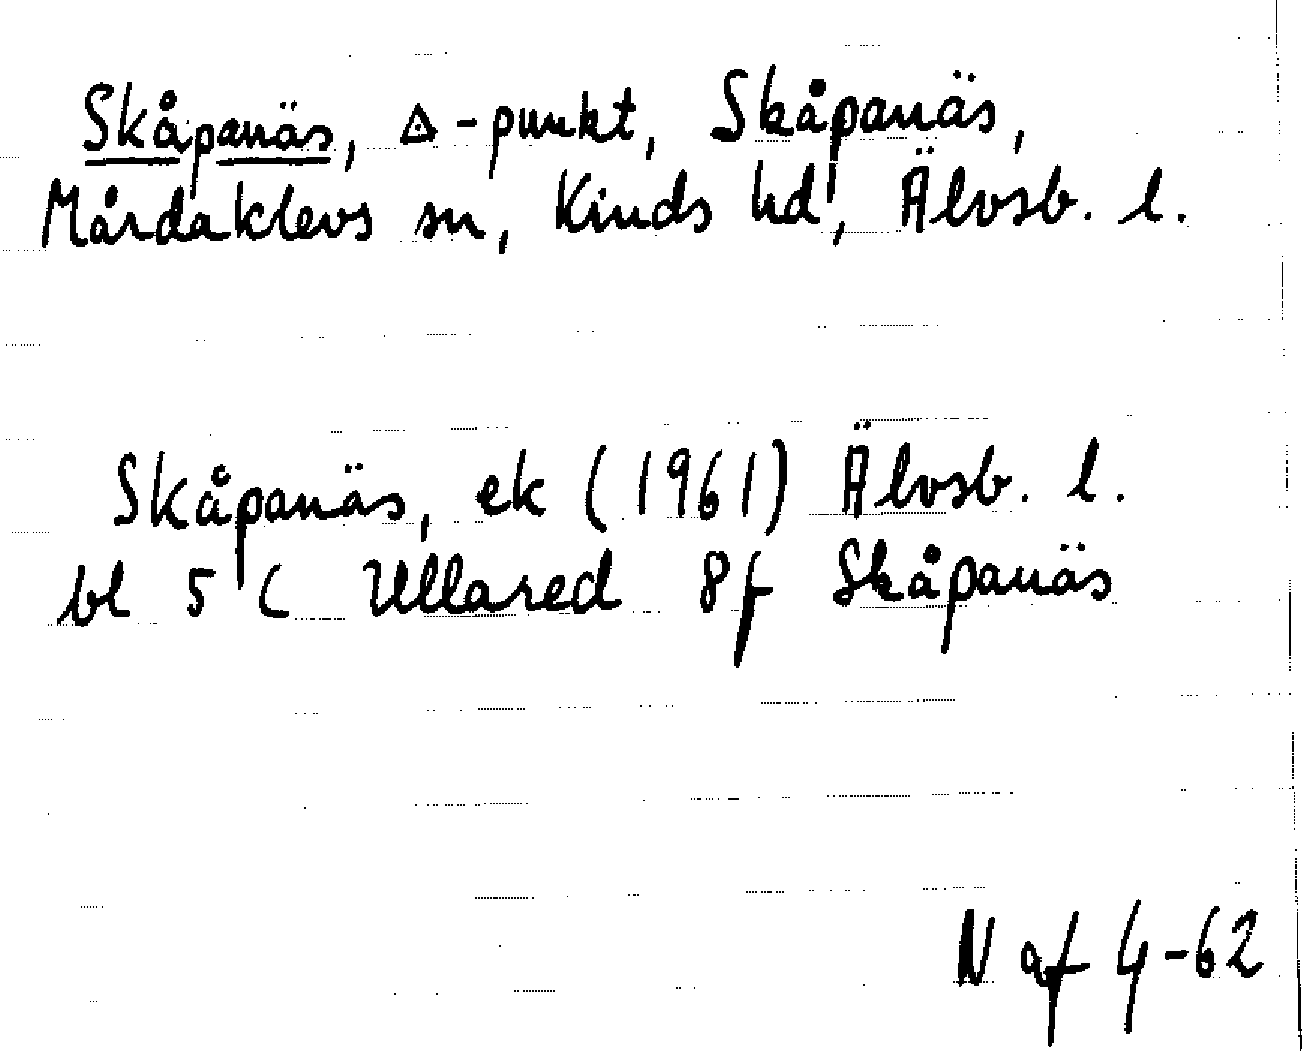 Skåpanäs, △-punkt, Skåpanäs,
Mårdaklevs sn, Kinds hd, Älvsb. l.
Skåpanäs, ek (1961) Älvsb. l.
bl 5 C Ullared 8f Skåpanäs
N af 4-62